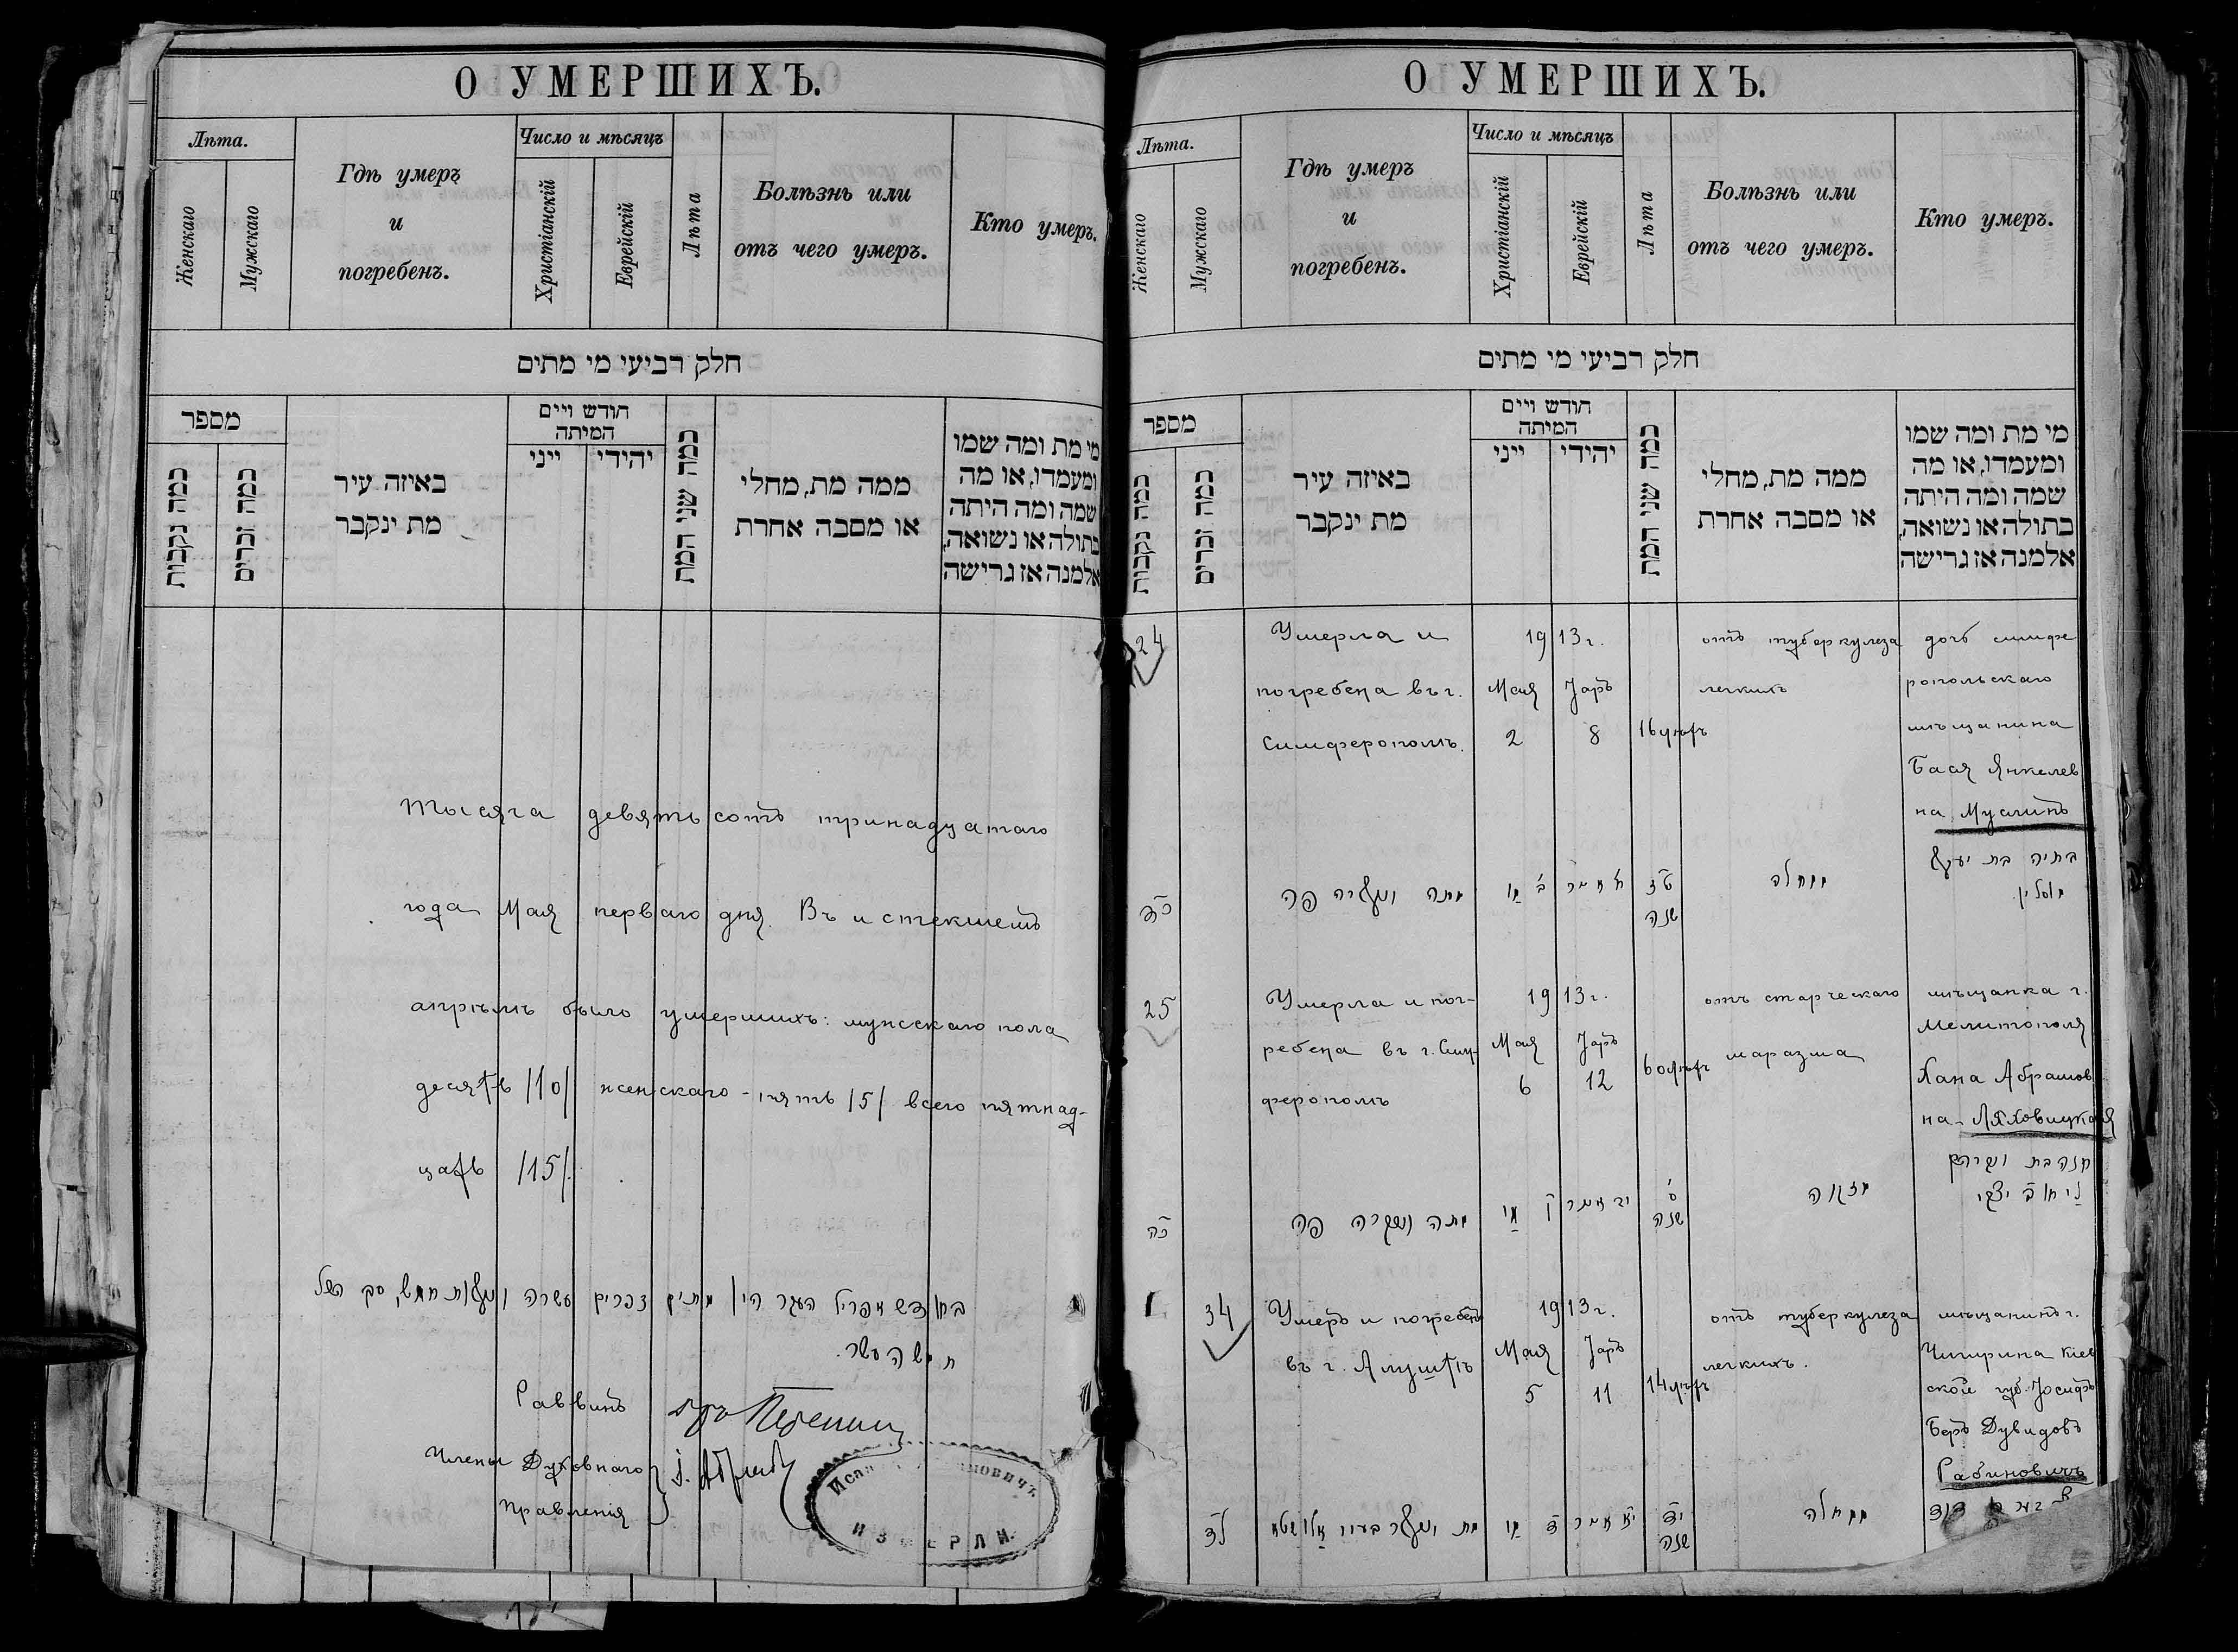 О УМЕРШИХЪ.
Лѣта.
Женскаго
Мужскаго
Гдѣ умеръ
и
погребенъ.
Число и мѣсяцъ
Христіанскій
Еврейскій
Лѣта
Болѣзнь или
отъ чего умеръ.
Кто умеръ.
חלק רביעי מי מתים
מספר
כמה נקבות
כמה זכרים
באיזה עיר
מת ינקבר
חודש ויים
המיתה
ייני
יהודי
כמה שני המת
ממה מת, מחלי
או מסבה אחרת
מי מת ומה שמו
ומעמדו, או מה
שמה ומה היתה
בתולה או נשואה,
אלמנה אז גרישה
тысяча девятьсотъ тринадцатаго
года Мая перваго дня. Въ истекшемъ
апрѣлѣ было умершихъ: мужскаго пола
десять /10/ женскаго - пять /5/ всего пятнад-
цать /15/.
חמשה עשר.
Раввинъ
Члены Духовнаго
Правленія
О УМЕРШИХЪ.
Лѣта.
Женскаго
Мужскаго
Гдѣ умеръ
и
погребенъ.
Число и мѣсяцъ
Христіанскій
Еврейскій
Лѣта
Болѣзнь или
отъ чего умеръ.
Кто умеръ.
חלק רביעי מי מתים
מספר
כמה נקבות
כמה זכרים
באיזה עיר
מת ינקבר
חודש ויים
המיתה
ייני
יהודי
כמה שני המת
ממה מת, מחלי
או מסבה אחרת
מי מת ומה שמו
ומעמדו, או מה
שמה ומה היתה
בתולה או נשואה,
אלמנה אז גרישה
24
Умерла и
погребена въ г.
Симферополѣ.
1913 г.
Мая
2
Іаръ
8
16 лѣтъ
отъ туберкулеза
легкихъ
дочь симфе
ропольскаго
мѣщанина
Бася Янкелев
на Муслинъ
כד
מתה ונקברה פה
ב' מאי
ח אייר
טז
שנה
מחלה
בתיה בת יעקב
מוסלין.
25
Умерла и пог-
ребена въ г. Сим-
ферополѣ
1913 г.
Мая
6
Іаръ
12
60 лѣтъ
отъ старческаго
маразма
мѣщанка г.
Мелитополя
Хана Абрамов
на Ляховицкая
כה
מתה ונקברה פה
ו מאי
יב אייר
ס
שנה
מזקנה
34
Умеръ и погребенъ
въ г. Алуштѣ
1913 г.
Мая
5
Іаръ
11
14 лѣтъ
отъ туберкулеза
легкихъ.
мѣщанинъ г.
Чигирина Кіев
ской губ. Іосифъ
Беръ Дувидовъ
Рабиновичъ
לד
מת ונקבר בעיר אלושטא
ה מאי
יא אייר
יד
שנה
מחלה